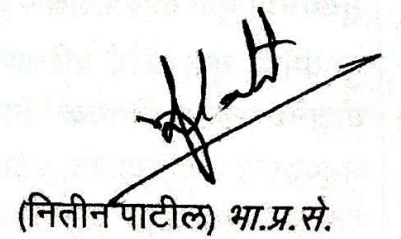 (नितीन पाटील) भा.प्र.से.